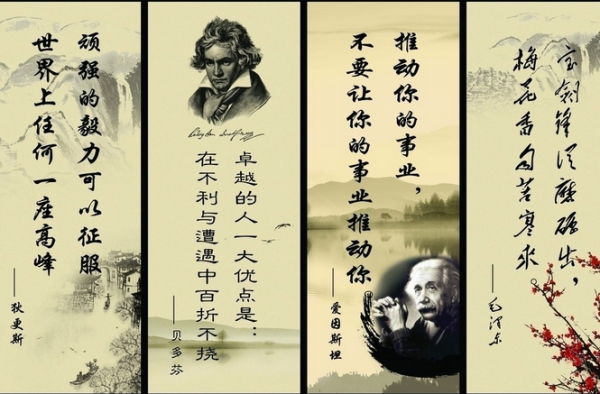 顽强的毅力可以征服
世界上任何一座高峰
——狄更斯
卓越的人一大优点是：
在不利与遭遇中百折不挠
——贝多芬
推动你的事业，
不要让你的事业推动你
——爱因斯坦
宝剑锋从磨砺出，
梅花香自苦寒来
——毛泽东